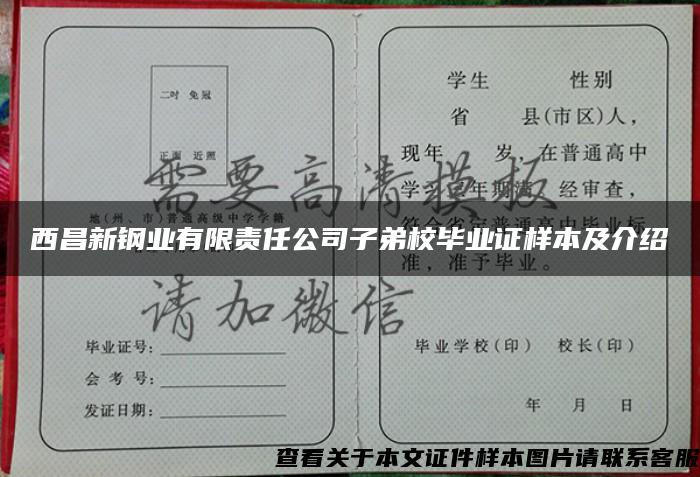 二吋 免冠
正面 近照
地(州、市)普通高级中学学籍
毕业证号:
会 考 号:
发证日期:
学生 性别
省 县(市区)人,
现年 岁, 在普通高中
学习 年期满, 经审查,
符合省定普通高中毕业标
准, 准予毕业。
毕业学校(印) 校长(印)
年 月 日
需要高清模板
请加微信
西昌新钢业有限责任公司子弟校毕业证样本及介绍
查看关于本文证件样本图片请联系客服